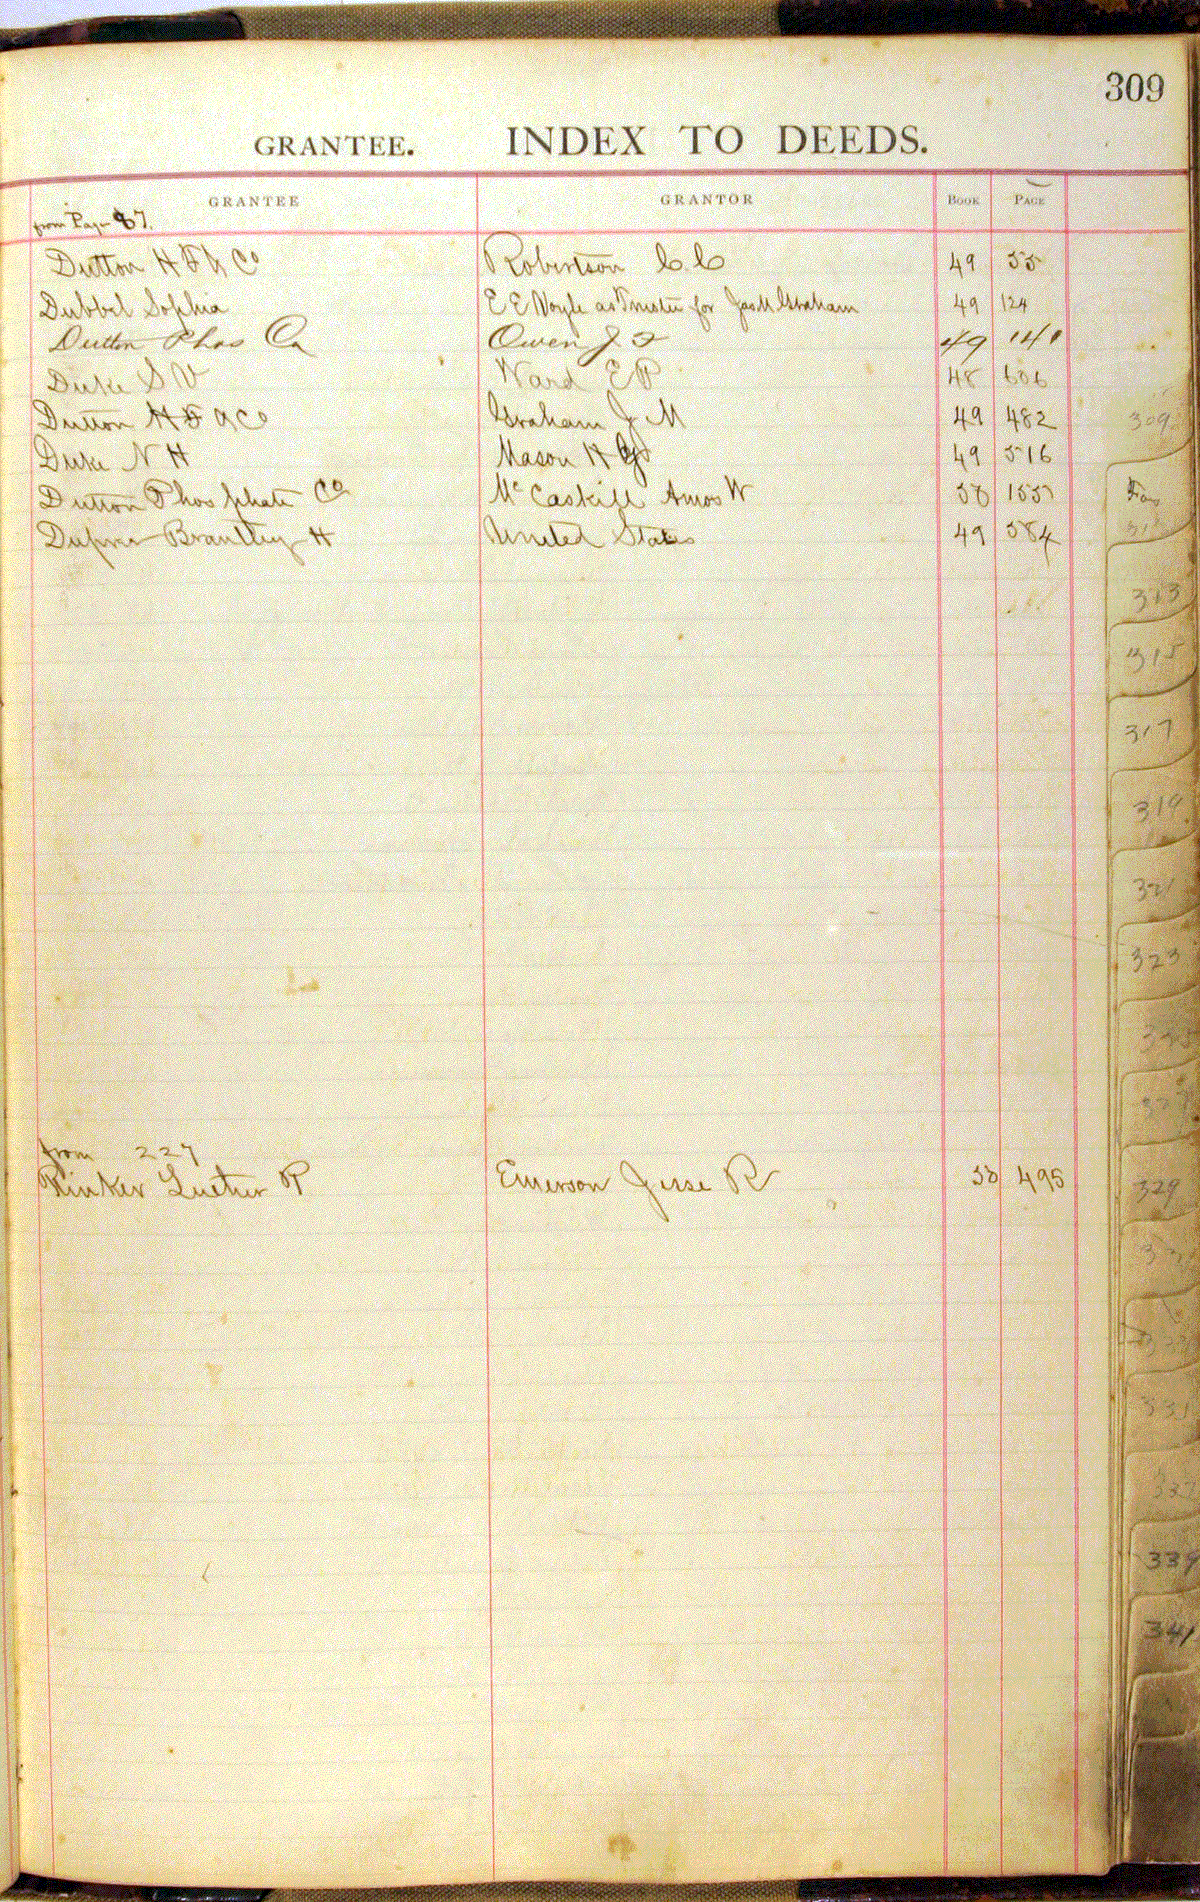 309
GRANTEE. INDEX TO DEEDS.
GRANTEE GRANTOR BOOK PAGE
from Page 87.
Dutton H F & Co Robertson C. C. 49 55
Dubbel Sophia E E Voyle as Trustee for Jas M Graham 49 124
Dutton Phos Co Owen J F 49 141
Duke S V Ward E P 48 606
Dutton H F & Co Graham J M 49 482
Duke N H Mason H 49 516
Dutton Phosphate Co McCaskill Amos W 50 155
Brantley H United States 49 584
from 227
Rinker Luther P Emerson Jesse R 50 495
309
313
315
317
319
321
323
325
327
329
339
341